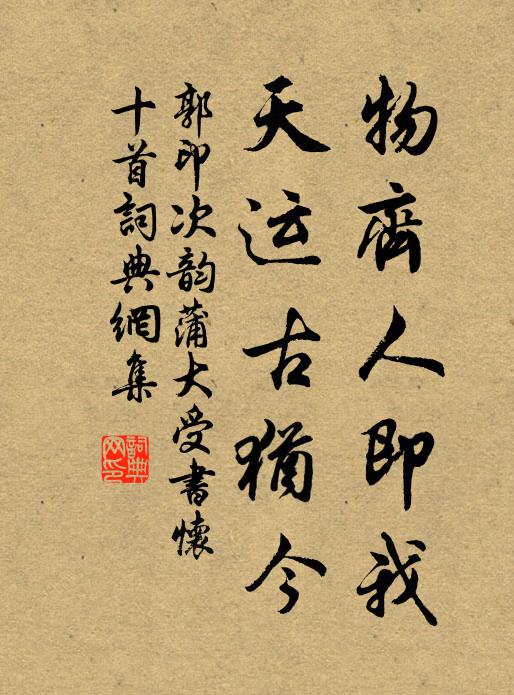 物齊人即我
天运古猶今
郭印次韵蒲大受書懷
十首詞典網集
詞典網印